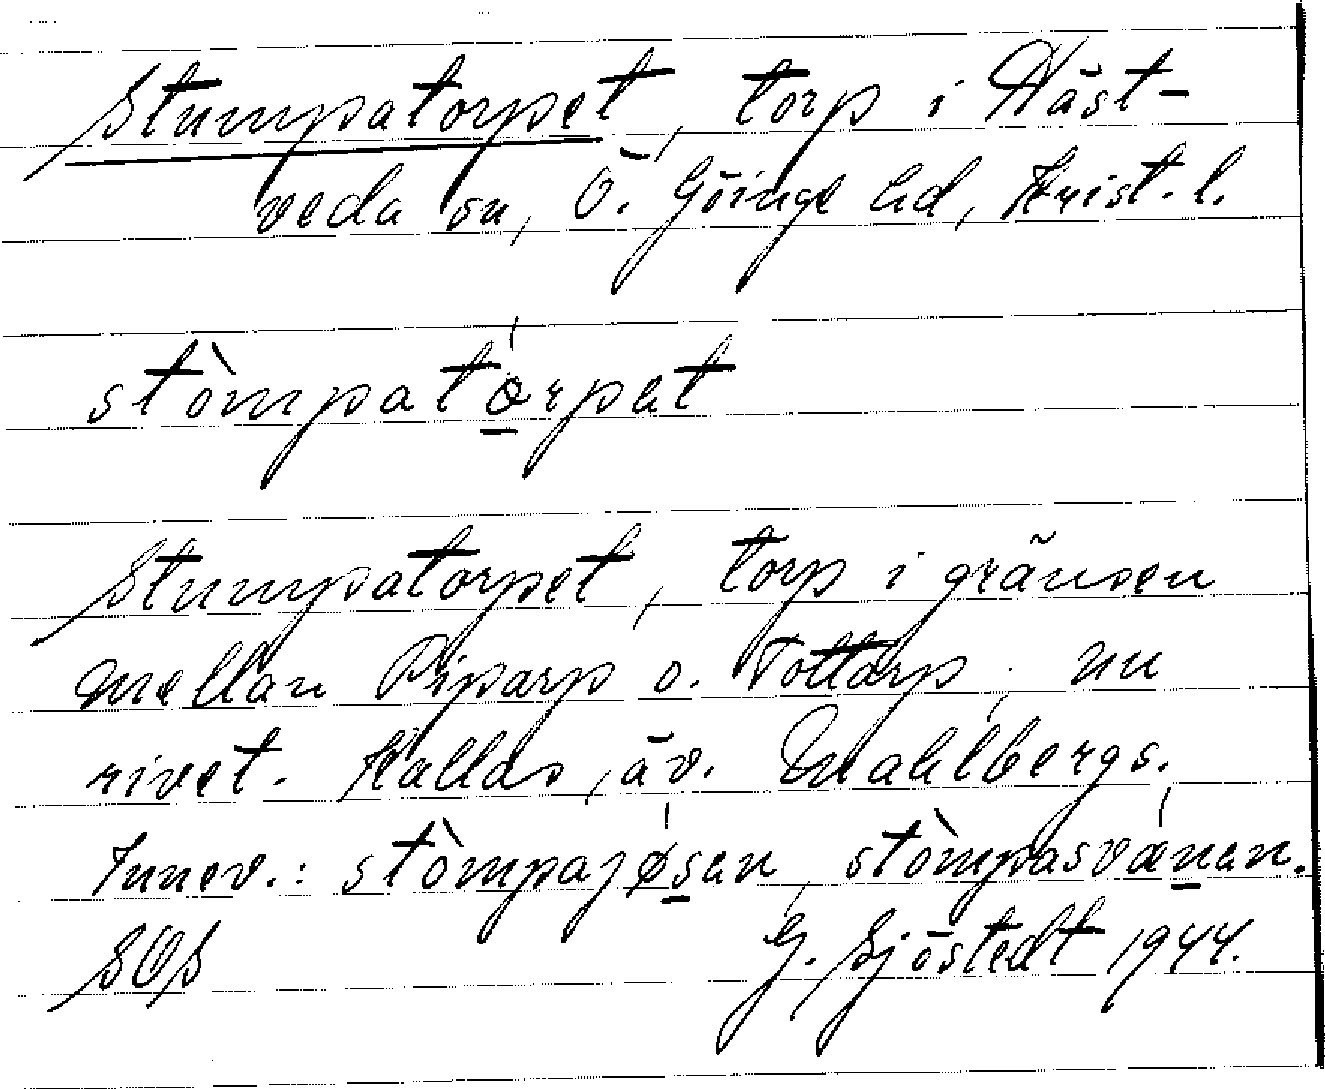 Stumpatorpet, torp i Häst-
veda sn, Ö. Göinge hd, Krist. l.
stòmpató̱rpet
Stumpatorpet, torp i gränsen
mellan Riparp o. Tottarp, nu
rivet. Kallas äv. Mahlbergs.
Innev.: stòmpajǿs̱en, stòmpasvǽṉen.
SOS G. Sjöstedt 1944.